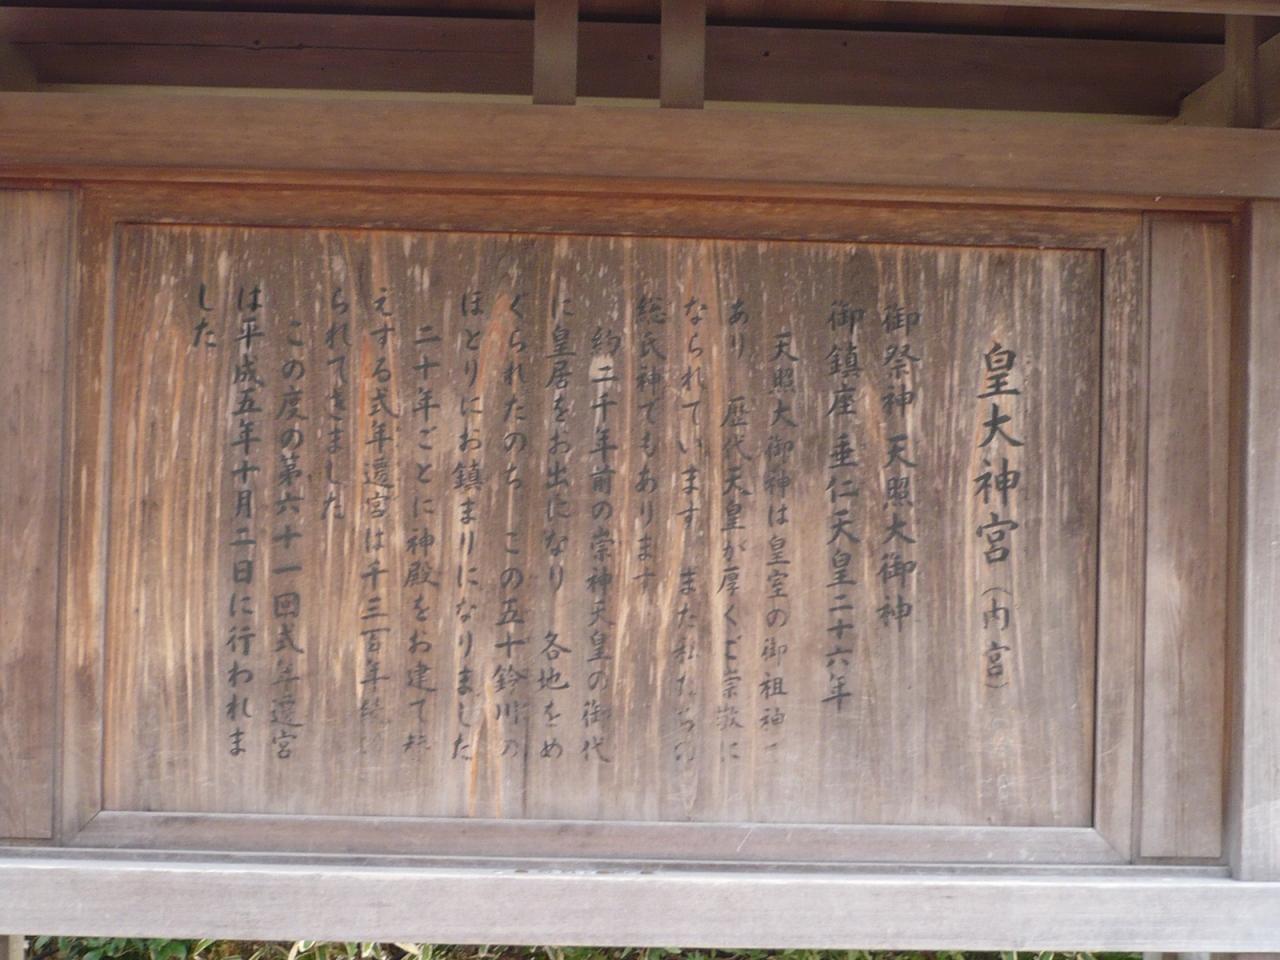 皇大神宮(内宮)
御祭神 天照大御神
御鎮座 垂仁天皇二十六年
天照大御神は皇室の御祖神で
あり 歴代天皇が厚くご崇敬に
なられています また私たちの
総氏神でもあります
約二千年前の崇神天皇の御代
に皇居をお出になり 各地をめ
ぐられたのち この五十鈴川の
ほとりにお鎮まりになりました
二十年ごとに神殿をお建て替
えする式年遷宮は千三百年続け
られてきました
この度の第六十一回式年遷宮
は平成五年十月二日に行われま
した